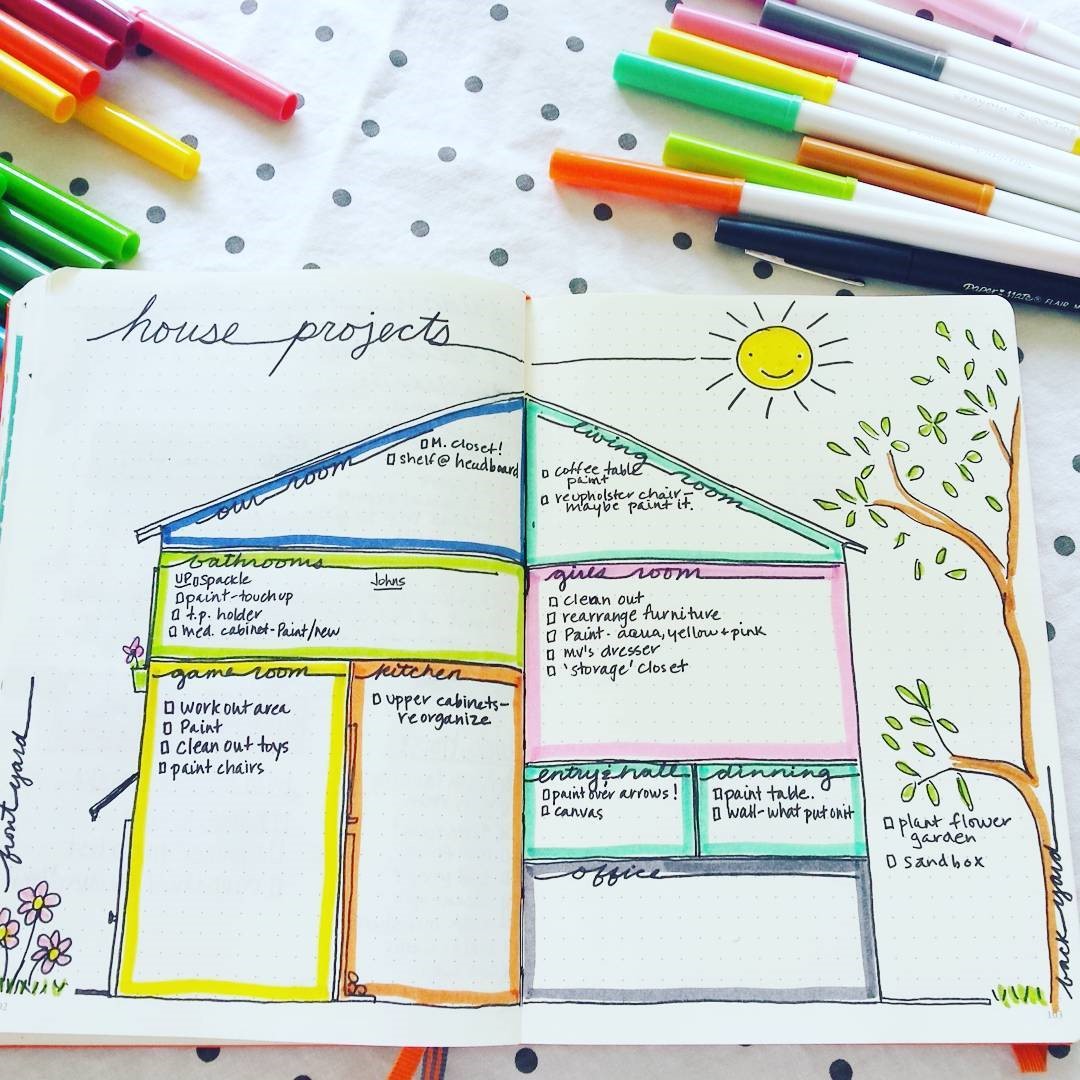 Paper Mate® FLAIR M
house projects
our room
☐ M. closet!
☐ shelf @ headboard
living room
☐ coffee table
paint
☐ reupholster chair-
maybe paint it.
bathrooms
UP ☐ spackle
Johns
☐ paint-touch up
☐ t.p. holder
☐ med. cabinet-Paint/new
girls room
☐ clean out
☐ rearrange furniture
☐ Paint- aqua, yellow + pink
☐ mv's dresser
☐ 'storage' closet
game room
☐ work out area
☐ Paint
☐ clean out toys
☐ paint chairs
kitchen
☐ upper cabinets-
reorganize
entry & hall
☐ paint over arrows!
☐ canvas
dinning
☐ paint table.
☐ wall-what put on it
office
front yard
☐ plant flower
garden
☐ sandbox
back yard
103